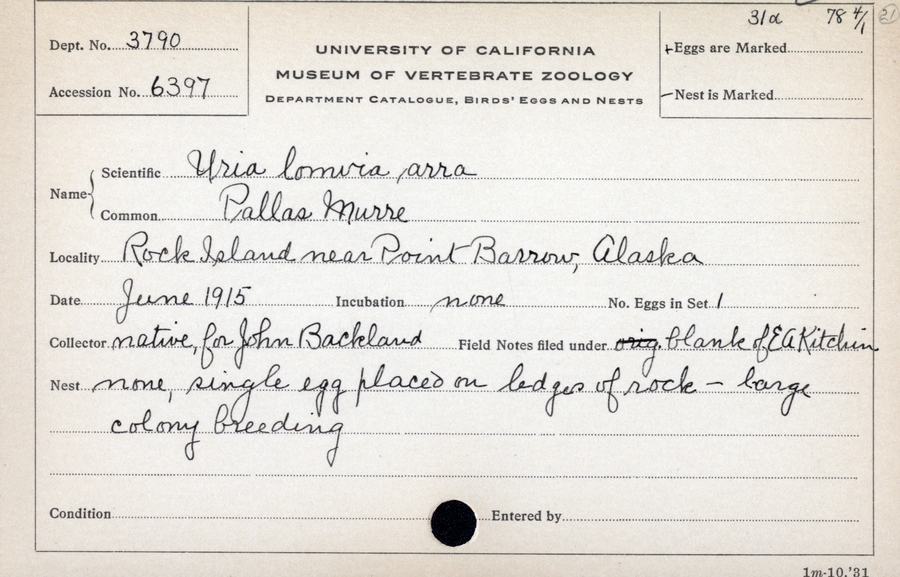 31a 78 4/1 21
Dept. No. 3790
Accession No. 6397
UNIVERSITY OF CALIFORNIA
MUSEUM OF VERTEBRATE ZOOLOGY
DEPARTMENT CATALOGUE, BIRDS' EGGS AND NESTS
+Eggs are Marked
—Nest is Marked
Name
Scientific Uria lomvia arra
Common Pallas Murre
Locality Rock Island near Point Barrow, Alaska
Date June 1915 Incubation none No. Eggs in Set 1
Collector native, for John Backland Field Notes filed under orig. blank of E A Kitchin
Nest none, single egg placed on ledges of rock – large
colony breeding
Condition Entered by
1m-10,'31